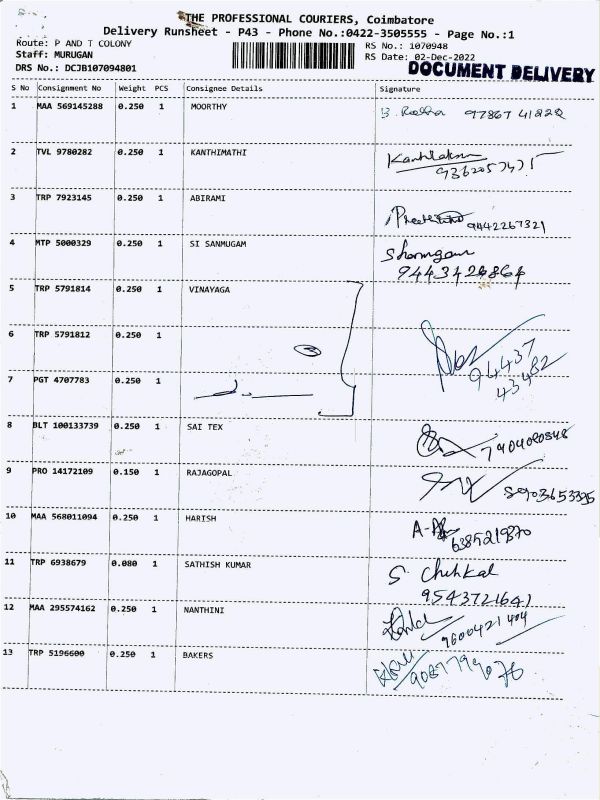 THE PROFESSIONAL COURIERS, Coimbatore
Delivery Runsheet - P43 - Phone No.:0422-3505555 - Page No.:1
Route: P AND T COLONY
Staff: MURUGAN
DRS No.: DCJB107094801
RS No.: 1070948
RS Date: 02-Dec-2022
DOCUMENT DELIVERY
S No Consignment No Weight PCS Consignee Details Signature
1 MAA 569145288 0.250 1 MOORTHY 97867 41222
2 TVL 9780282 0.250 1 KANTHIMATHI
3 TRP 7923145 0.250 1 ABIRAMI 9442267321
4 MTP 5000329 0.250 1 SI SANMUGAM Shanmgam
9443424864
5 TRP 5791814 0.250 1 VINAYAGA
6 TRP 5791812 0.250 1
3
94437
43482
7 PGT 4707783 0.250 1
8 BLT 100133739 0.250 1 SAI TEX
9 PRO 14172109 0.150 1 RAJAGOPAL 8903653395
10 MAA 568011094 0.250 1 HARISH
11 TRP 6938679 0.080 1 SATHISH KUMAR
9543721641
12 MAA 295574162 0.250 1 NANTHINI 9600421404
13 TRP 5196600 0.250 1 BAKERS